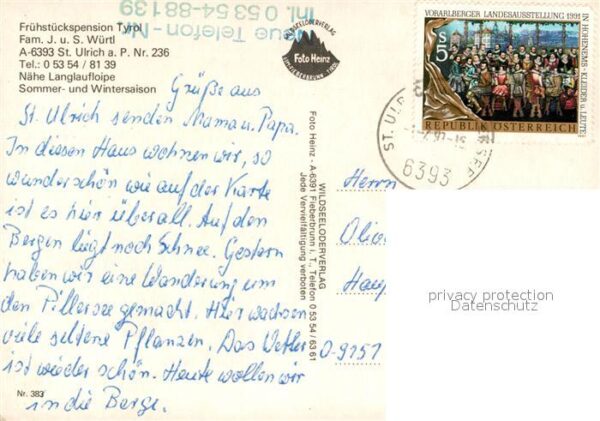 Frühstückspension Tyrol
Fam. J. u. S. Würtl
A-6393 St. Ulrich a. P. Nr. 236
Tel.: 0 53 54 / 81 39
Nähe Langlaufloipe
Sommer- und Wintersaison
Neue Telefon-Nr.
Inl. 0 53 54-88 139
WILDSEELODERVERLAG
Foto Heinz
FIEBERBRUNN TIROL
VORARLBERGER LANDESAUSSTELLUNG 1991
IN HOHENEMS · KLEIDER u. LEUTE
S 5
REPUBLIK ÖSTERREICH
ST. ULR
6393
Grüße aus
St. Ulrich senden Mama u. Papa.
In diesen Haus wohnen wir, so
wunderschön wie auf der Karte
ist es hier überall. Auf den
Bergen liegt noch Schnee. Gestern
haben wir eine Wanderung um
den Pillersee gemacht. Hier wachsen
viele seltene Pflanzen. Das Wetter
ist wieder schön. Heute wollen wir
in die Berge.
Nr. 383
WILDSEELODERVERLAG
Foto Heinz - A-6391 Fieberbrunn i. T., Telefon 0 53 54 / 63 61
Jede Vervielfältigung verboten
Herrn
Olive
Haup
O-9151
privacy protection
Datenschutz